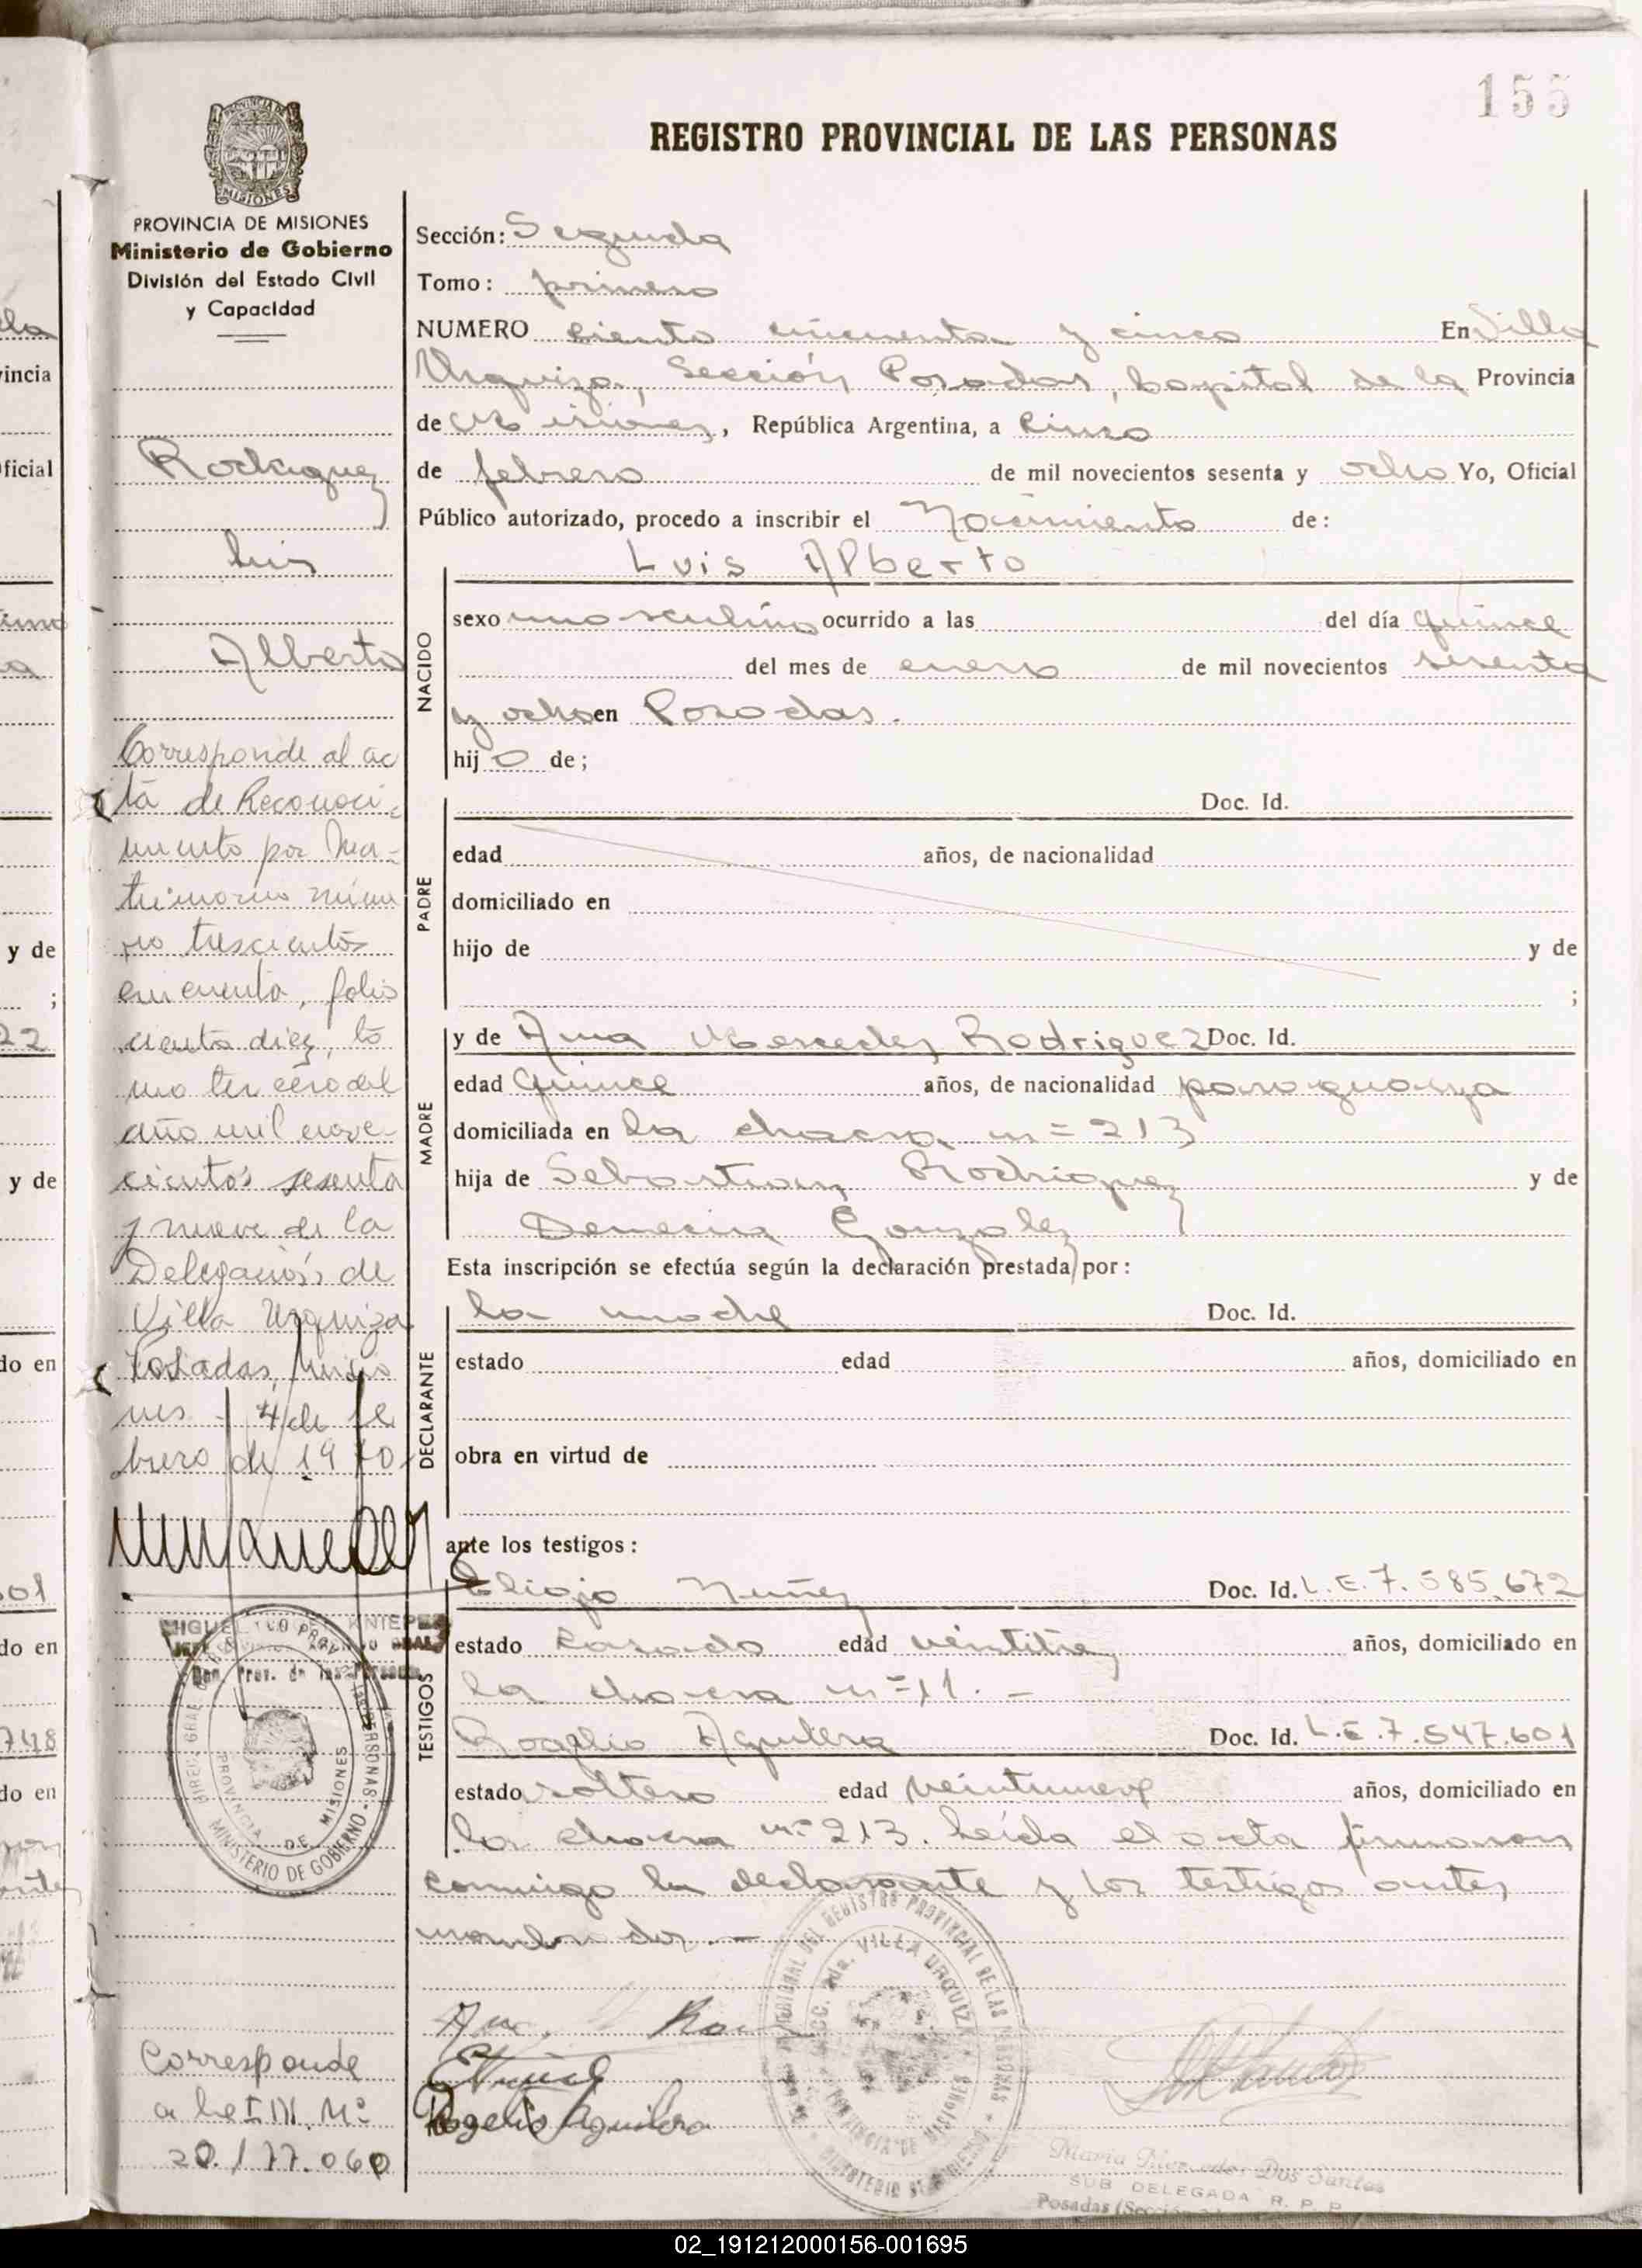 155
REGISTRO PROVINCIAL DE LAS PERSONAS
PROVINCIA DE MISIONES
Ministerio de Gobierno
División del Estado Civil
y Capacidad
Rodriguez
Luis
Alberto
Corresponde al ac
ta de Reconoci-
miento por Ma-
trimonio núme
ro trescientos
cincuenta, folio
ciento diez, to
mo tercero del
año mil nove-
cientos sesenta
y nueve de la
Delegación de
Villa Urquiza
Posadas, Misio
nes - 4 de fe
brero de 1970.
MIGUEL
Corresponde
a la I N Nº
20.177.060
Sección: Segunda
Tomo: primero
NUMERO ciento cincuenta y cinco En Villa
Urquiza, Sección Posadas, Capital de la Provincia
de Misiones, República Argentina, a cinco
de febrero de mil novecientos sesenta y ocho Yo, Oficial
Público autorizado, procedo a inscribir el Nacimiento de:
Luis Alberto
NACIDO
sexo masculino ocurrido a las del día quince
del mes de enero de mil novecientos sesenta
y ocho en Posadas.
hij o de;
PADRE
Doc. Id.
edad años, de nacionalidad
domiciliado en
hijo de y de
;
MADRE
y de Ana Mercedes Rodriguez Doc. Id.
edad quince años, de nacionalidad paraguaya
domiciliada en la chacra nº 213
hija de Sebastian Rodriguez y de
Gonzalez
Esta inscripción se efectúa según la declaración prestada por:
DECLARANTE
la madre Doc. Id.
estado edad años, domiciliado en
obra en virtud de
ante los testigos:
TESTIGOS
Nuñez Doc. Id. L.E.7.585.672
estado casado edad veintitres años, domiciliado en
la chacra nº 11. -
Rogelio Aguilera Doc. Id. L.E.7.547.601
estado soltero edad veintinueve años, domiciliado en
la chacra nº 213. Leída el acta firmaron
conmigo la declarante y los testigos antes
nombrados. -
Rogelio Aguilera
VILLA URQUIZA
PROVINCIA DE MISIONES
MINISTERIO DE GOBIERNO
Dos Santos
SUB DELEGADA R. P. P.
Posadas
02_191212000156-001695